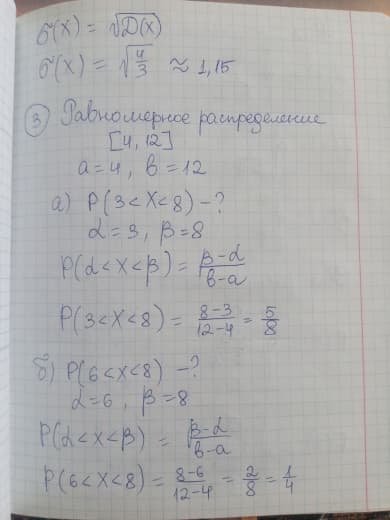 σ(X) = √D(X)
σ(X) = √4/3 ≈ 1,15
3 Равномерное распределение
[4, 12]
a = 4, b = 12
а) P(3 < X < 8) - ?
α = 3, β = 8
P(α < X < β) = β-α / b-a
P(3 < X < 8) = 8-3 / 12-4 = 5/8
б) P(6 < X < 8) - ?
α = 6, β = 8
P(α < X < β) = β-α / b-a
P(6 < X < 8) = 8-6 / 12-4 = 2/8 = 1/4